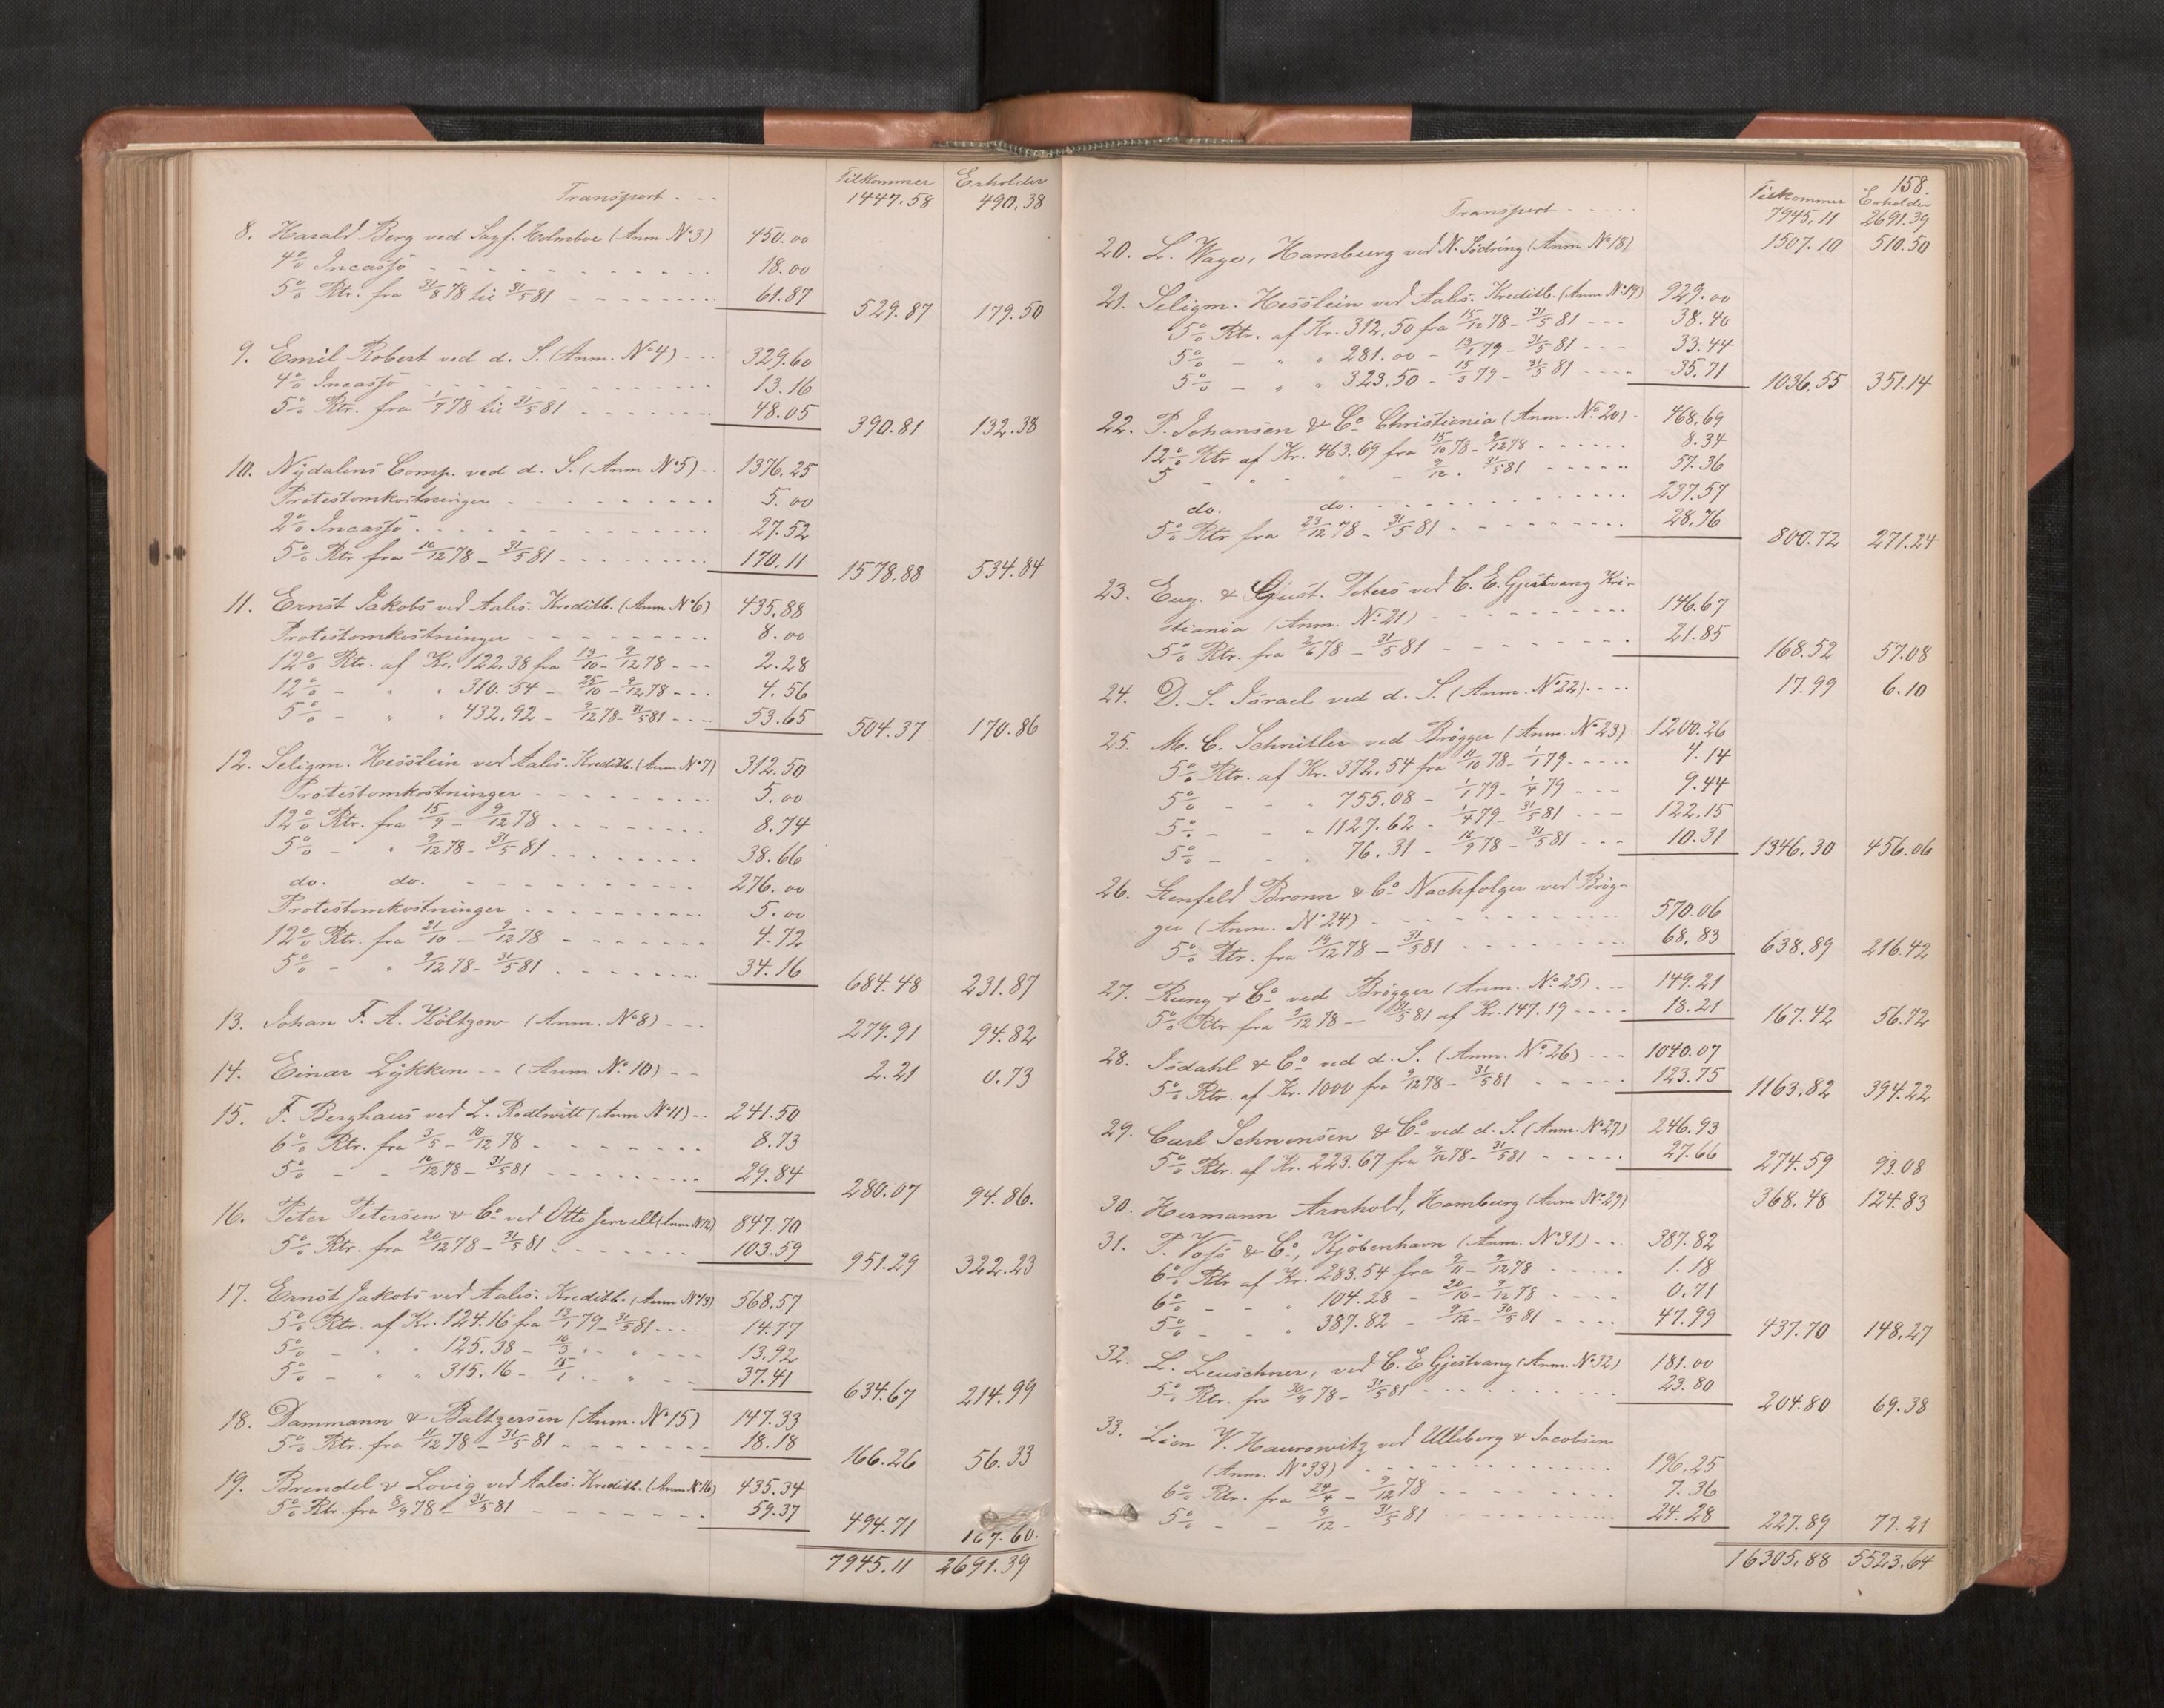 Tilkommer Erholder
Transport . . . 1447.58 490.38
8. Harald Berg ved Sagf. Holmboe (Anm. No 3) 450.00
4% Incasso 18.00
5% Rtr. fra 31/8 78 til 31/5 81 61.87 529.87 179.50
9. Emil Robert ved d. S. (Anm. No 4) 329.60
4% Incasso 13.16
5% Rtr. fra 1/7 78 til 31/5 81 48.05 390.81 132.38
10. Nydalens Comp. ved d. S. (Anm No 5) 1376.25
Protestomkostninger 5.00
2% Incasso 27.52
5% Rtr fra 10/12 78 - 31/5 81 170.11 1578.88 534.84
11. Ernst Jakobs ved Aales. Kreditb. (Anm No 6) 435.88
Protestomkostninger 8.00
12% Rtr. af Kr. 122.38 fra 19/10 - 9/12 78 2.28
12% - " " 310.54 - 25/10 - 9/12 78 4.56
5% - " " 432.92 - 9/12 78 - 31/5 81 53.65 504.37 170.86
12. Seligm. Hesslein ved Aales. Kreditb. (Anm No 7) 312.50
Protestomkostninger 5.00
12% Rtr. fra 15/9 - 9/12 78 8.74
5% - " 9/12 78 - 31/5 81 38.66
do. do. 276.00
Protestomkostninger 5.00
12% Rtr. fra 21/10 - 9/12 78 4.72
5% - " 9/12 78 - 31/5 81 34.16 684.48 231.87
13. Johan F. A. Költzow (Anm. No 8) 279.91 94.82
14. Einar Lykken - - (Anm No 10) 2.21 0.73
15. F. Berghaus ved L. (Anm No 11) 241.50
6% Rtr. fra 3/5 - 10/12 78 8.73
5% - - 10/12 78 - 31/5 81 29.84 280.07 94.86.
16. Peter Petersen & Co ved Otto Jervell (Anm No 12) 847.70
5% Rtr. fra 20/12 78 - 31/5 81 103.59 951.29 322.23
17. Ernst Jakobs ved Aales. Kreditb. (Anm No 13) 568.57
5% Rtr. af Kr. 124.16 fra 13/1 79 - 31/5 81 14.77
5% - " " 125.38 - 10/3 " - " 13.92
5% - " " 315.16 - 15/1 " - " 37.41 634.67 214.99
18. Dammann & Baltzersen (Anm. No 15) 147.33
5% Rtr. fra 11/12 78 - 31/5 81 18.18 166.26 56.33
19. Brendel & Lovig ved Aales. Kreditb. (Anm No 16) 435.34
5% Rtr. fra 8/9 78 - 31/5 81 59.37 494.71 167.60.
7945.11 2691.39
158.
Tilkommer Erholder
Transport 7945.11 2691.39
20. L. Wage, Hamburg ved N. Södring (Anm No 18) 1507.10 510.50
21. Seligm. Hesslein ved Aales. Kreditb. (Anm No 19) 929.00
5% Rtr. af Kr. 312.50 fra 15/12 78 - 31/5 81 38.40
5% - " " 281.00 - 13/1 79 - 31/5 81 33.44
5% - " " 323.50 - 15/3 79 - 31/5 81 35.71 1036.55 351.14
22. P. Johansen & Co Christiania (Anm. No 20) 468.69
12% Rtr af Kr. 463.69 fra 15/10 78 - 9/12 78 8.34
5 - " - " - 9/12 - 31/5 81 57.36
do. do. 237.57
5% Rtr fra 23/12 78 - 31/5 81 28.76 800.72 271.24
23. Eug. & Gust. Peters ved C. E. Gjestvang Kri-
stiania (Anm. No 21) 146.67
5% Rtr. fra 2/6 78 - 31/5 81 21.85 168.52 57.08
24. D. S. Israel ved d. S. (Anm. No 22) 17.99 6.10
25. M. C. Schnitler ved Brøgger (Anm. No 23) 1200.26
5% Rtr. af Kr. 372.54 fra 11/10 78 - 1/1 79 4.14
5% - - " 755.08 - 1/1 79 - 1/4 79 9.44
5% - - " 1127.62 - 1/4 79 - 31/5 81 122.15
5% - - " 76.31 - 16/9 78 - 31/5 81 10.31 1346.30 456.06
26. Bronn & Co Nachfolger ved Brøg-
ger (Anm. No 24) 570.06
5% Rtr. fra 19/12 78 - 31/5 81 68.83 638.89 216.42
27. Kung & Co ved Brøgger (Anm. No 25) 149.21
5% Rtr fra 9/12 78 - 31/5 81 af Kr. 147.19 18.21 167.42 56.72
28. Isdahl & Co ved d. S. (Anm. No 26) 1040.07
5% Rtr. af Kr. 1000 fra 9/12 78 - 31/5 81 123.75 1163.82 394.22
29. Carl Schwensen & Co ved d. S. (Anm. No 27) 246.93
5% Rtr. af Kr. 223.67 fra 9/12 78 - 31/5 81 27.66 274.59 93.08
30. Hermann Arnhold, Hamburg (Anm No 29) 368.48 124.83
31. P. Voss & Co, Kjöbenhavn (Anm. No 31) 387.82
6% Rtr af Kr. 283.54 fra 9/11 - 9/12 78 1.18
6% - - " 104.28 - 20/10 - 9/12 78 0.71
5% - - " 387.82 - 9/12 - 30/5 81 47.99 437.70 148.27
32. L. Leuschner, ved C. E. Gjestvang (Anm. No 32) 181.00
5% Rtr. fra 30/9 78 - 31/5 81 23.80 204.80 69.38
33. Lion V. Haurowitz ved Ulleberg & Jacobsen
(Anm. No 33) 196.25
6% Rtr. fra 24/4 - 9/12 78 7.36
5% - - 9/12 - 31/5 81 24.28 227.89 77.21
16305.88 5523.64